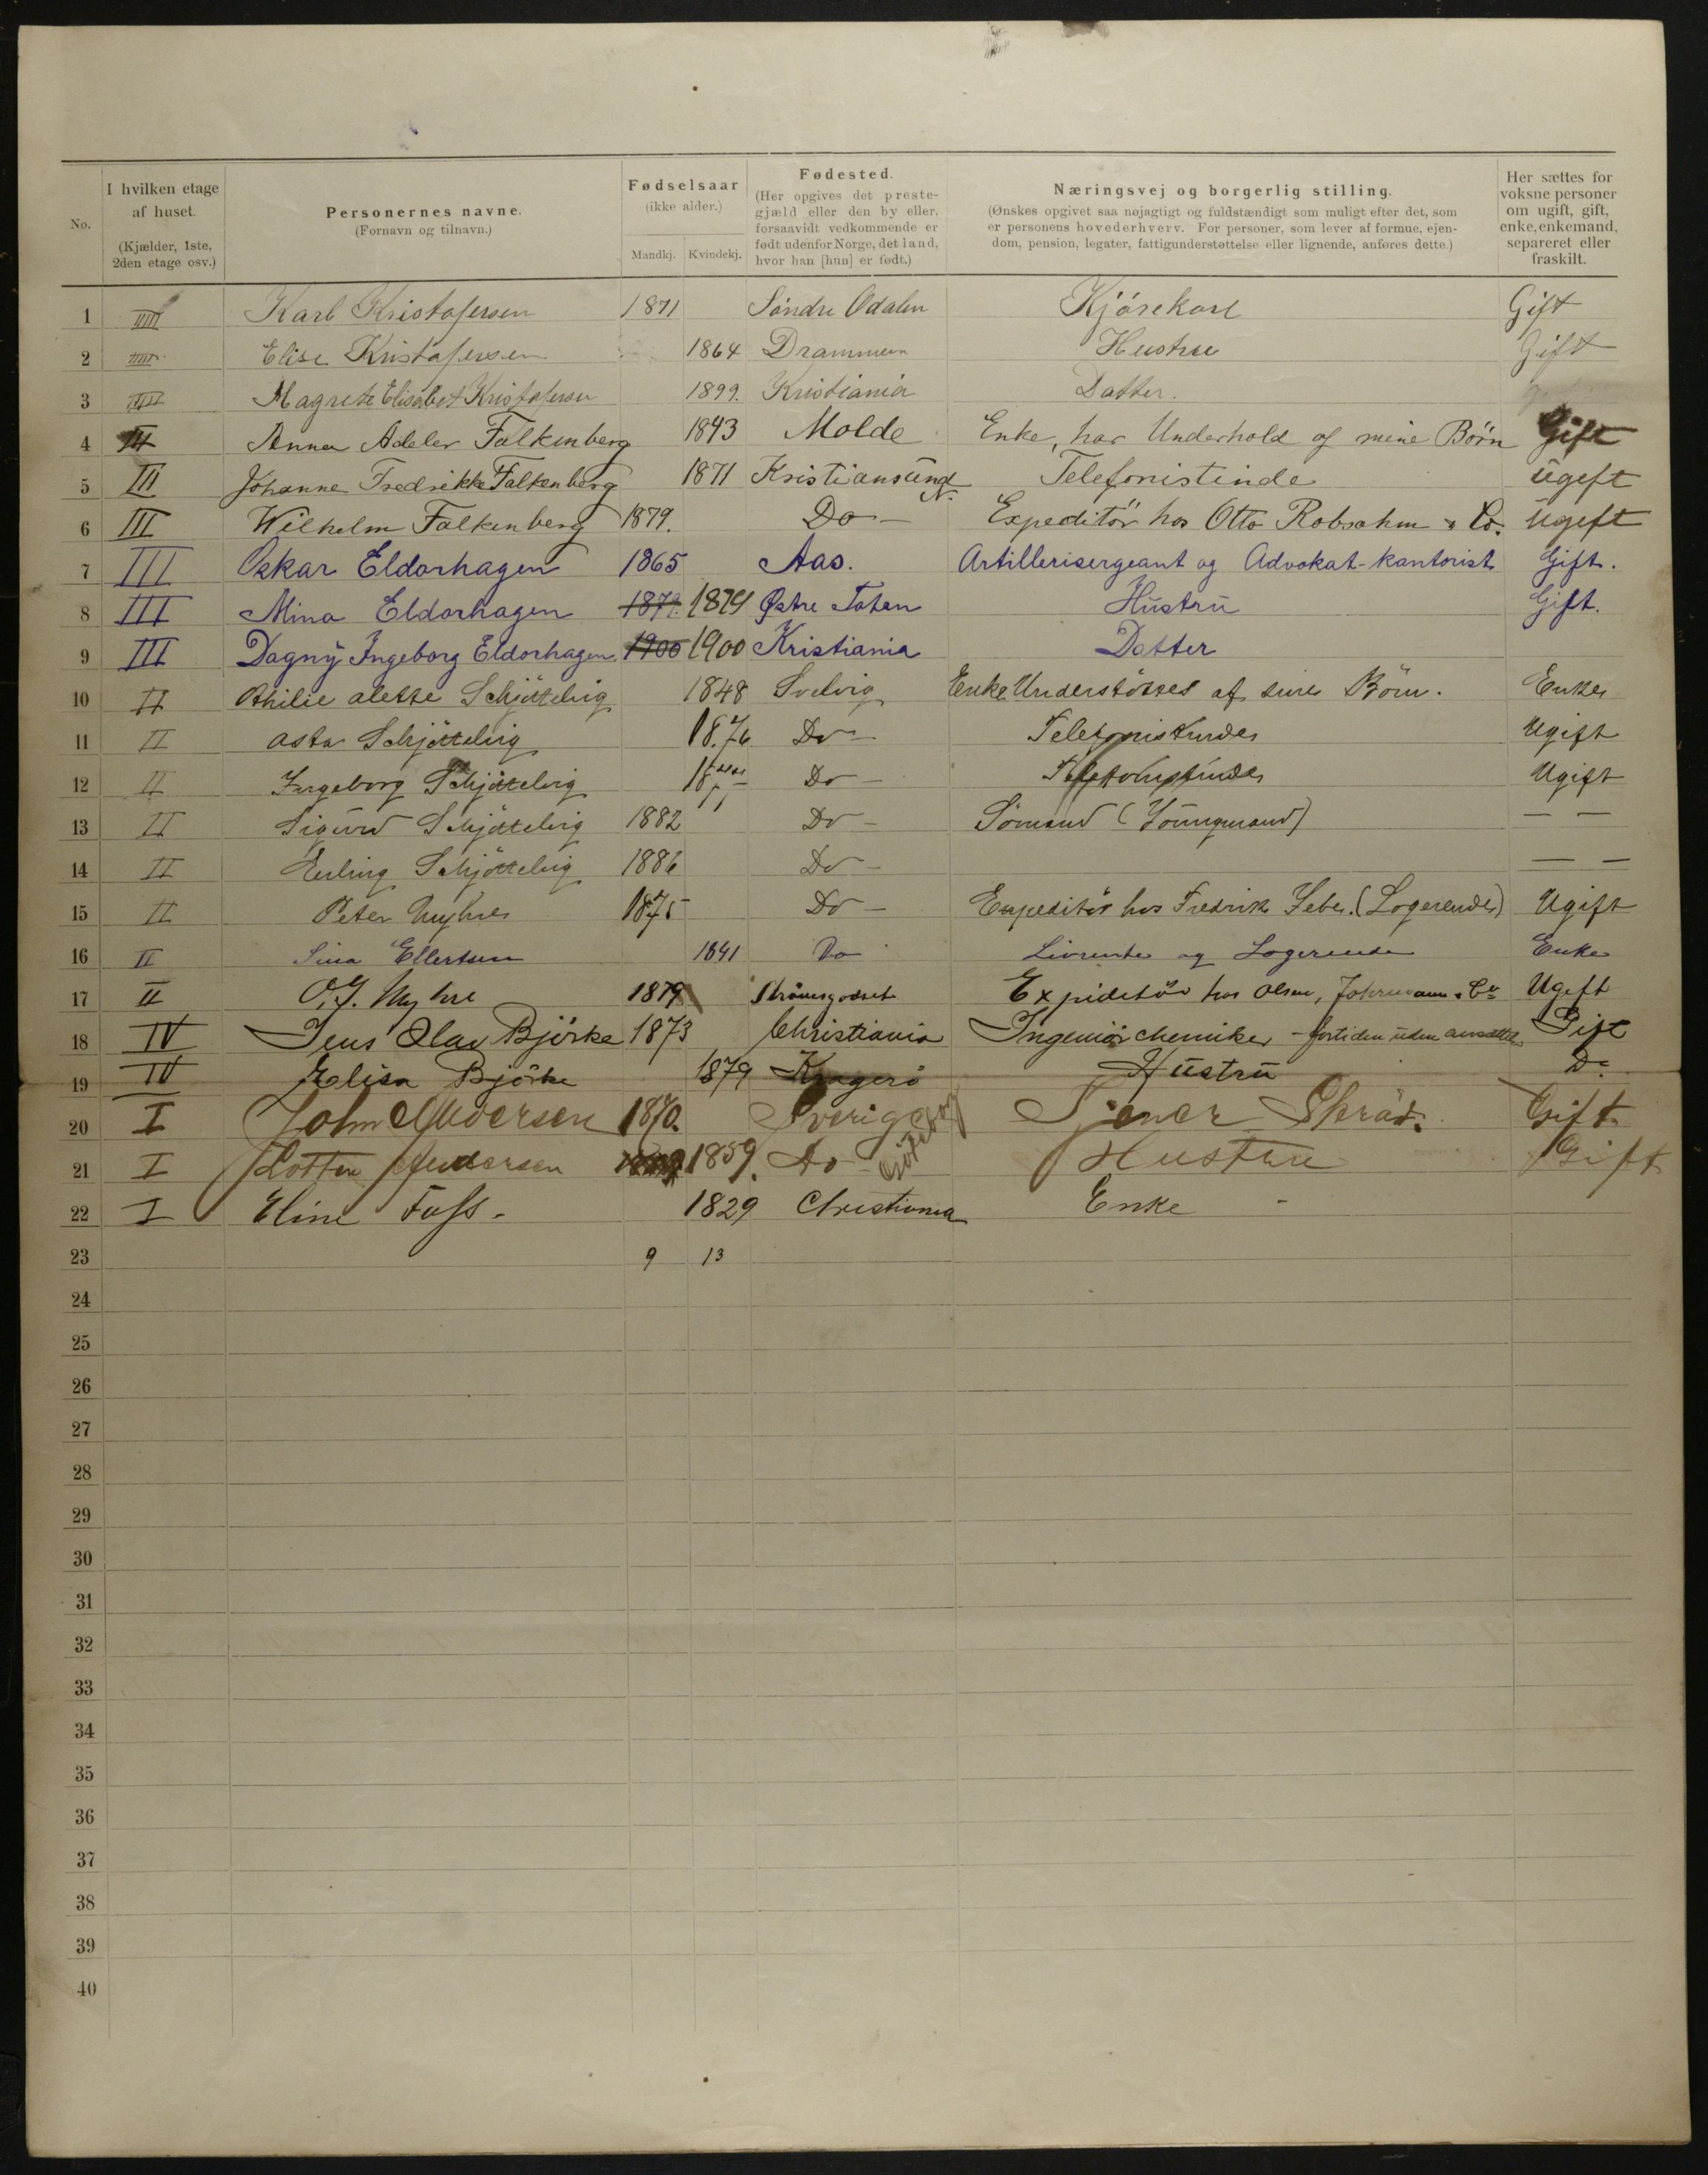 No.
I hvilken etage af huset. (Kjælder, 1ste, 2den etage osv.)
Personernes navne. (Fornavn og tilnavn.)
Fødselsaar (ikke alder.) Mandkj. Kvindekj.
Fødested. (Her opgives det prestegjæld eller den by eller, forsaavidt vedkommende er født udenfor Norge, det land, hvor han [hun] er født.)
Næringsvej og borgerlig stilling. (Ønskes opgivet saa nøjagtigt og fuldstændigt som muligt efter det, som er personens hovederhverv. For personer, som lever af formue, ejendom, pension, legater, fattigunderstøttelse eller lignende, anføres dette.)
Her sættes for voksne personer om ugift, gift, enke, enkemand, separeret eller fraskilt.
1 IIII Karl Kristofersen 1871 Söndre Odalen Kjörekarl Gift
2 IIII Elise Kristofersen 1864 Drammen Hustru Gift
3 IIII Magrete Elisabet Kristofersen 1899. Kristiania Datter.
4 III Anna Adeler Falkenberg 1843 Molde Enke, har Underhold af mine Börn Gift
5 III Johanne Fredrikke Falkenberg 1871 Kristiansund N. Telefonistinde ugift
6 III Wilhelm Falkenberg 1879. Do - Expeditör hos Otto Robsahm & Co. Ugift
7 III Oskar Eldorhagen 1865 Aas. Artillerisergeant og Advokat-kantorist Gift.
8 III Mina Eldorhagen 1879. 1879 Østre Toten Hustru Gift.
9 III Dagny Ingeborg Eldorhagen 1900 1900 Kristiania Datter
10 II Othilie alette Schjöttelvig 1848 Svelvig Enke Understöttes af sine Börn. Enke
11 II asta Schjöttelvig 1876 Do - Telefonistinde Ugift
12 II Ingeborg Schjöttelvig Do - Telefonistinde Ugift
13 II Sigurd Schjöttelvig 1882 Do - Sömand (Youngmand) — —
14 II Erling Schjöttelvig 1886 Do - — —
15 II Peter Myhre 1875 Do - Expeditör hos Fredrik (Logerende) Ugift
16 II Sina Ellertsen 1841 Do Livrente og Logerende Enke
17 II O. J. Myhre 1879 Strömsgodset Expiditör hos Olsen, & Co Ugift
18 IV Jens Olav Björke 1873 Christiania Ingeniör chemiker - fortiden uden ansættelse Gift
19 IV Elisa Björke 1879 Kragerö Hustru Do.
20 I John Andersen 1870. Sverige Göteborg Tjener Gift
21 I Lotten Andersen 1859. Do - Hustru Gift
22 I Eline Foss. 1829 Christiania Enke -
23 9 13
24
25
26
27
28
29
30
31
32
33
34
35
36
37
38
39
40